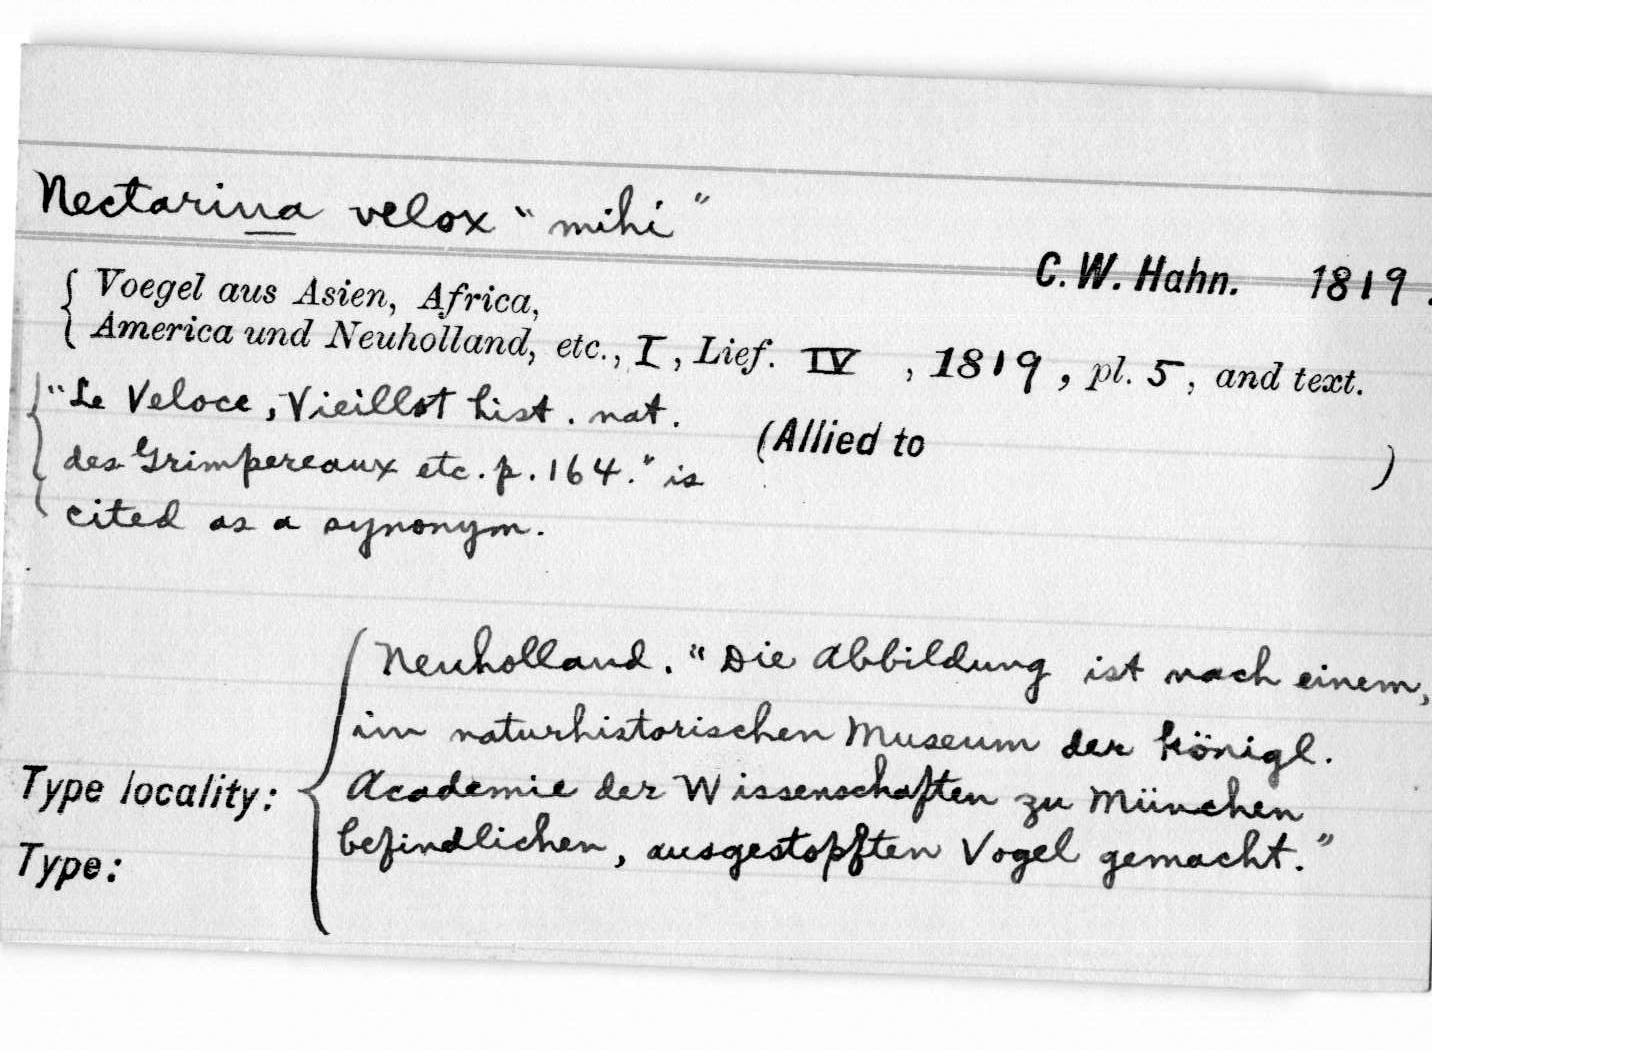 Nectarina velox "mihi"
C. W. Hahn. 1819.
Voegel aus Asien, Africa,
America und Neuholland, etc., I, Lief. IV , 1819, pl. 5, and text.
"Le Veloce, Vieillot hist. nat.
des Grimpereaux etc. p. 164." is
cited as a synonym.
(Allied to )
Neuholland. "Die Abbildung ist nach einem,
im naturhistorischen Museum der königl.
Type locality: Academie der Wissenschaften zu München
befindlichen, ausgestopften Vogel gemacht."
Type: